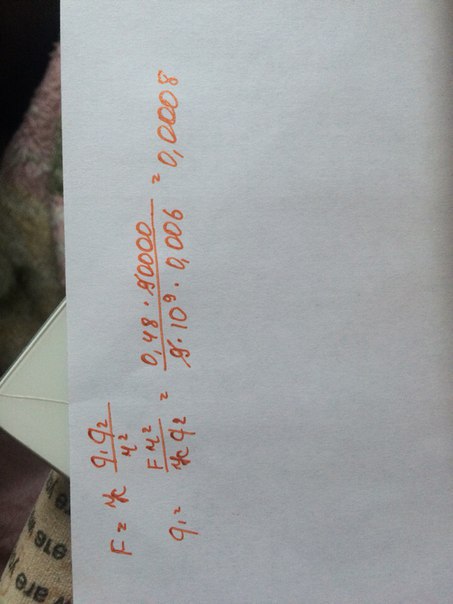 F = к q₁q₂/r²
q₁ = Fr²/кq₂ = 0,48 · 90000/9 · 10⁹ · 0,006 = 0,0008
are